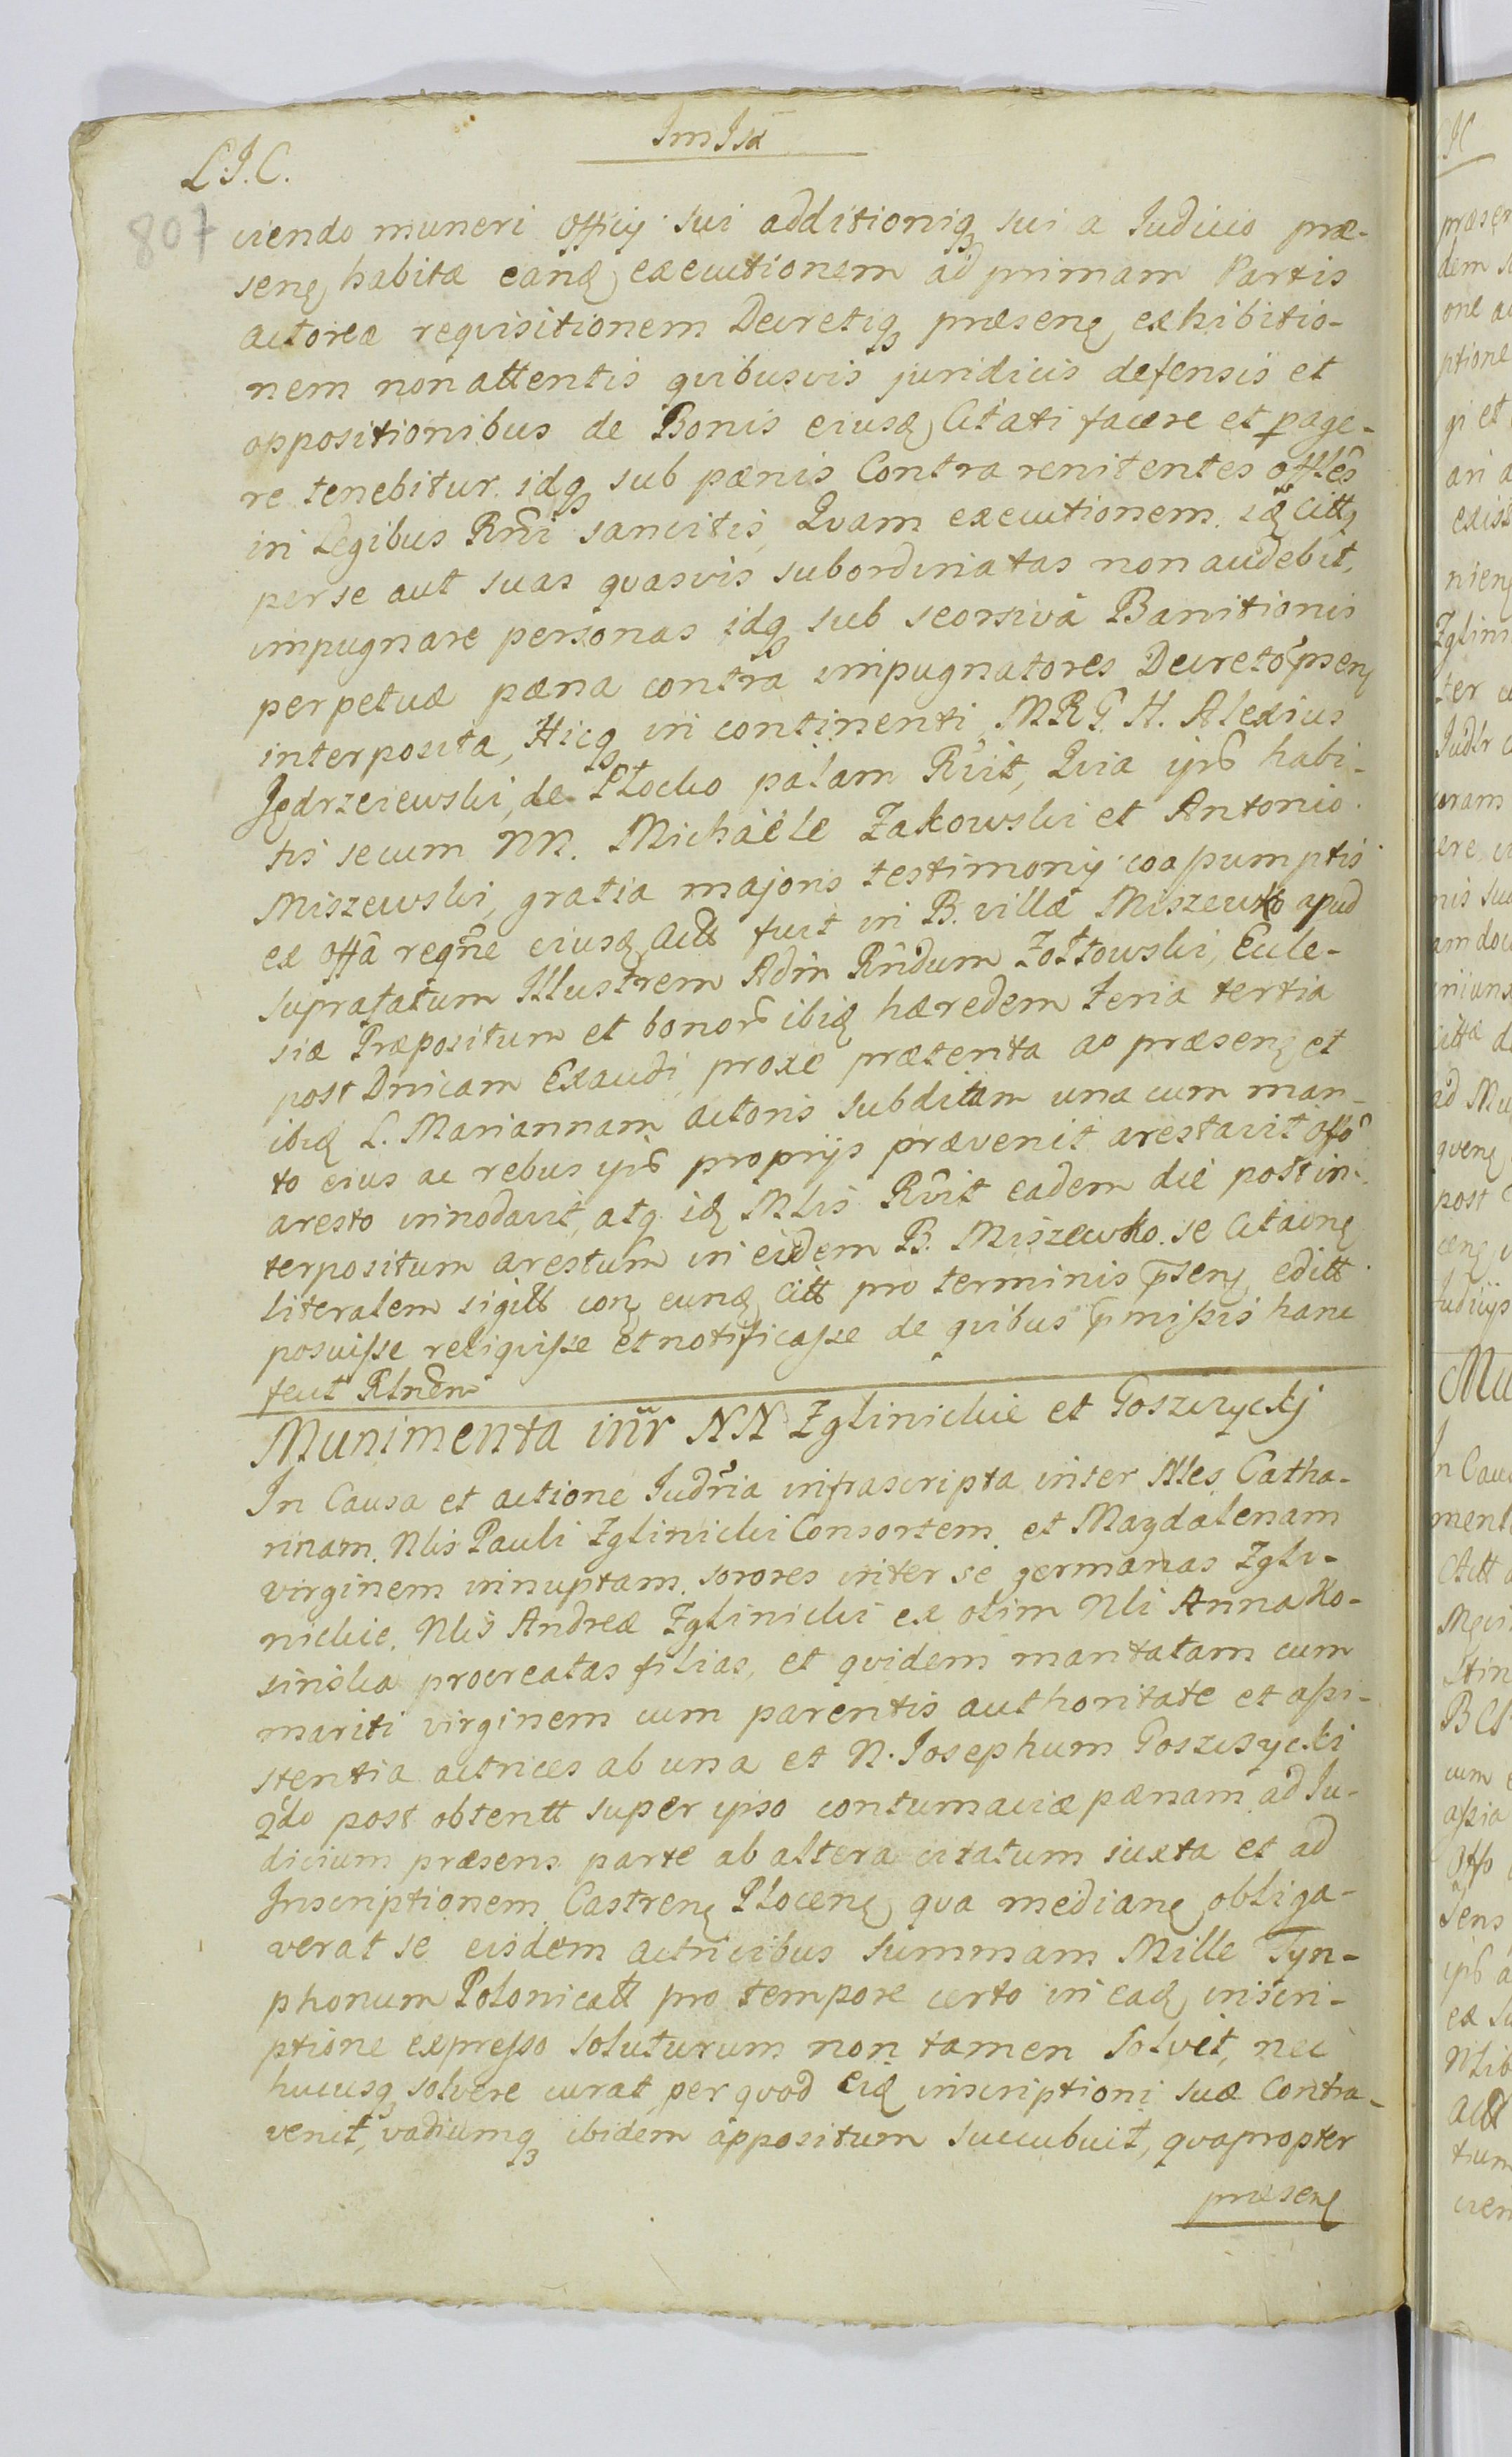 ImIsa
L.I.C.
807
ciendo muneri Officij sui additioniq3 sui a Iudicio præ-
senę habitæ eandę executionem ad primam Partis
actoreæ requisitionem Decretiq3 præsenę exhibitio-
nem non attentis quibusvis juridicis defensis et
oppositionibus de Bonis eiusdę Citati facere et page-
re tenebitur. idq3 sub pænis Contra renitentes offles
in Legibus Rni sancitis, Quam executionem idę Citts
per se aut suas quasvis subordinatas non audebit,
impugnare personas idq3 sub seorsiva Banitionis
perpetuæ pæna contra impugnatores Decreto pnsenę
interposita, Hicq3 in continenti MRG. H. Alexius
Jędrzeiewski, de Płocko palam Rvit, Quia ips habi-
tis secum NN. Michaële Zakowski et Antonio
Miszewski, gratia majoris testimonij coassumptis
ex offa reqne eiusdę Actt fuit in B. villa Miszewko apud
suprafatum Illustrem Adm Rndum Zołtowski, Eccle-
siæ Præpositum et bonor ibidę hæredem feria tertia
post Dnicam Exaudi proxe præterita ao præsenę et
ibidę L. Mariannam actoris subditam una cum mari-
to eius ac rebus ips proprijs prævenit arestavit offo
aresto innodavit, atq idę Mlis Rvit eadem die post in-
terpositum arestum in eidem B. Miszewko se Citaonę
literalem sigilt conę eundę Citt pro terminis psenę editt
posuisse reliquisse et notificasse de quibus pmissis hanc
fecit Rlnem
Munimenta intr NN Zglinickie et Goszczyckj
In Causa et actione Iudria infrascripta inter Illes Catha-
rinam. Nlis Pauli Zglinicki Consortem et Magdalenam
virginem innuptam. sorores inter se germanas Zgli-
nickie. Nlis Andreæ Zglinicki ex olim Nli Anna Ko-
sinska procreatas filias, et quidem maritatam cum
mariti virginem cum parentis authoritate et assi-
stentia actrices ab una et N. Iosephum Goszczycki
2do post obtentt super ipso contumaciæ pænam ad Iu-
dicium præsens parte ab altera citatum iuxta et ad
Inscriptionem Castrenę Płocenę qua medianę obliga-
verat se eisdem actricibus summam Mille Tyn-
phonum Polonicatt pro tempore certo in eadę inscri-
ptione expresso soluturum non tamen solvit, nec
hucusq3 solvere curat, per quod eidę inscriptioni suæ Contra-
venit, vadiumq3 ibidem appositum succubuit, quapropter
præsenę